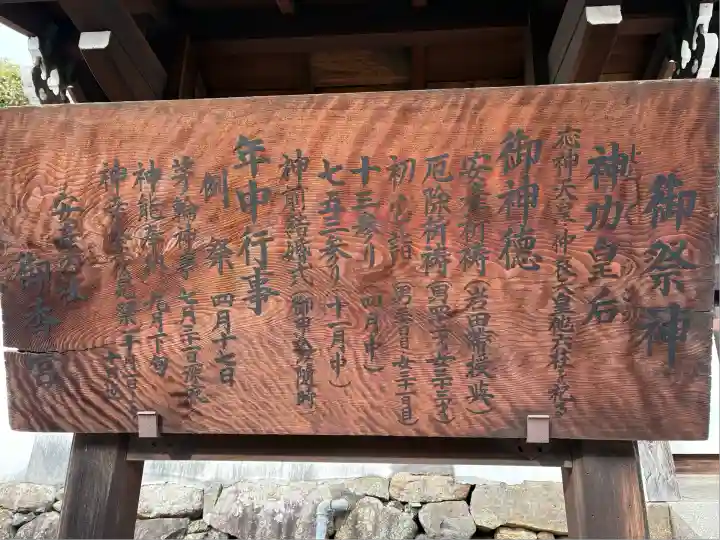 御祭神
神功皇后
応神天皇、仲哀天皇他六柱を祀る
御神徳
安産祈祷（岩田帯授与）
厄除祈祷（男四十二才女三十三才）
初宮詣（男三十日女三十一日目）
十三参り（四月中）
七五三参り（十一月中）
神前結婚式（御申込随時）
年中行事
例祭 四月十七日
茅輪神事 七月三十一日
神能奉納 九月下旬
安産の社
御香宮